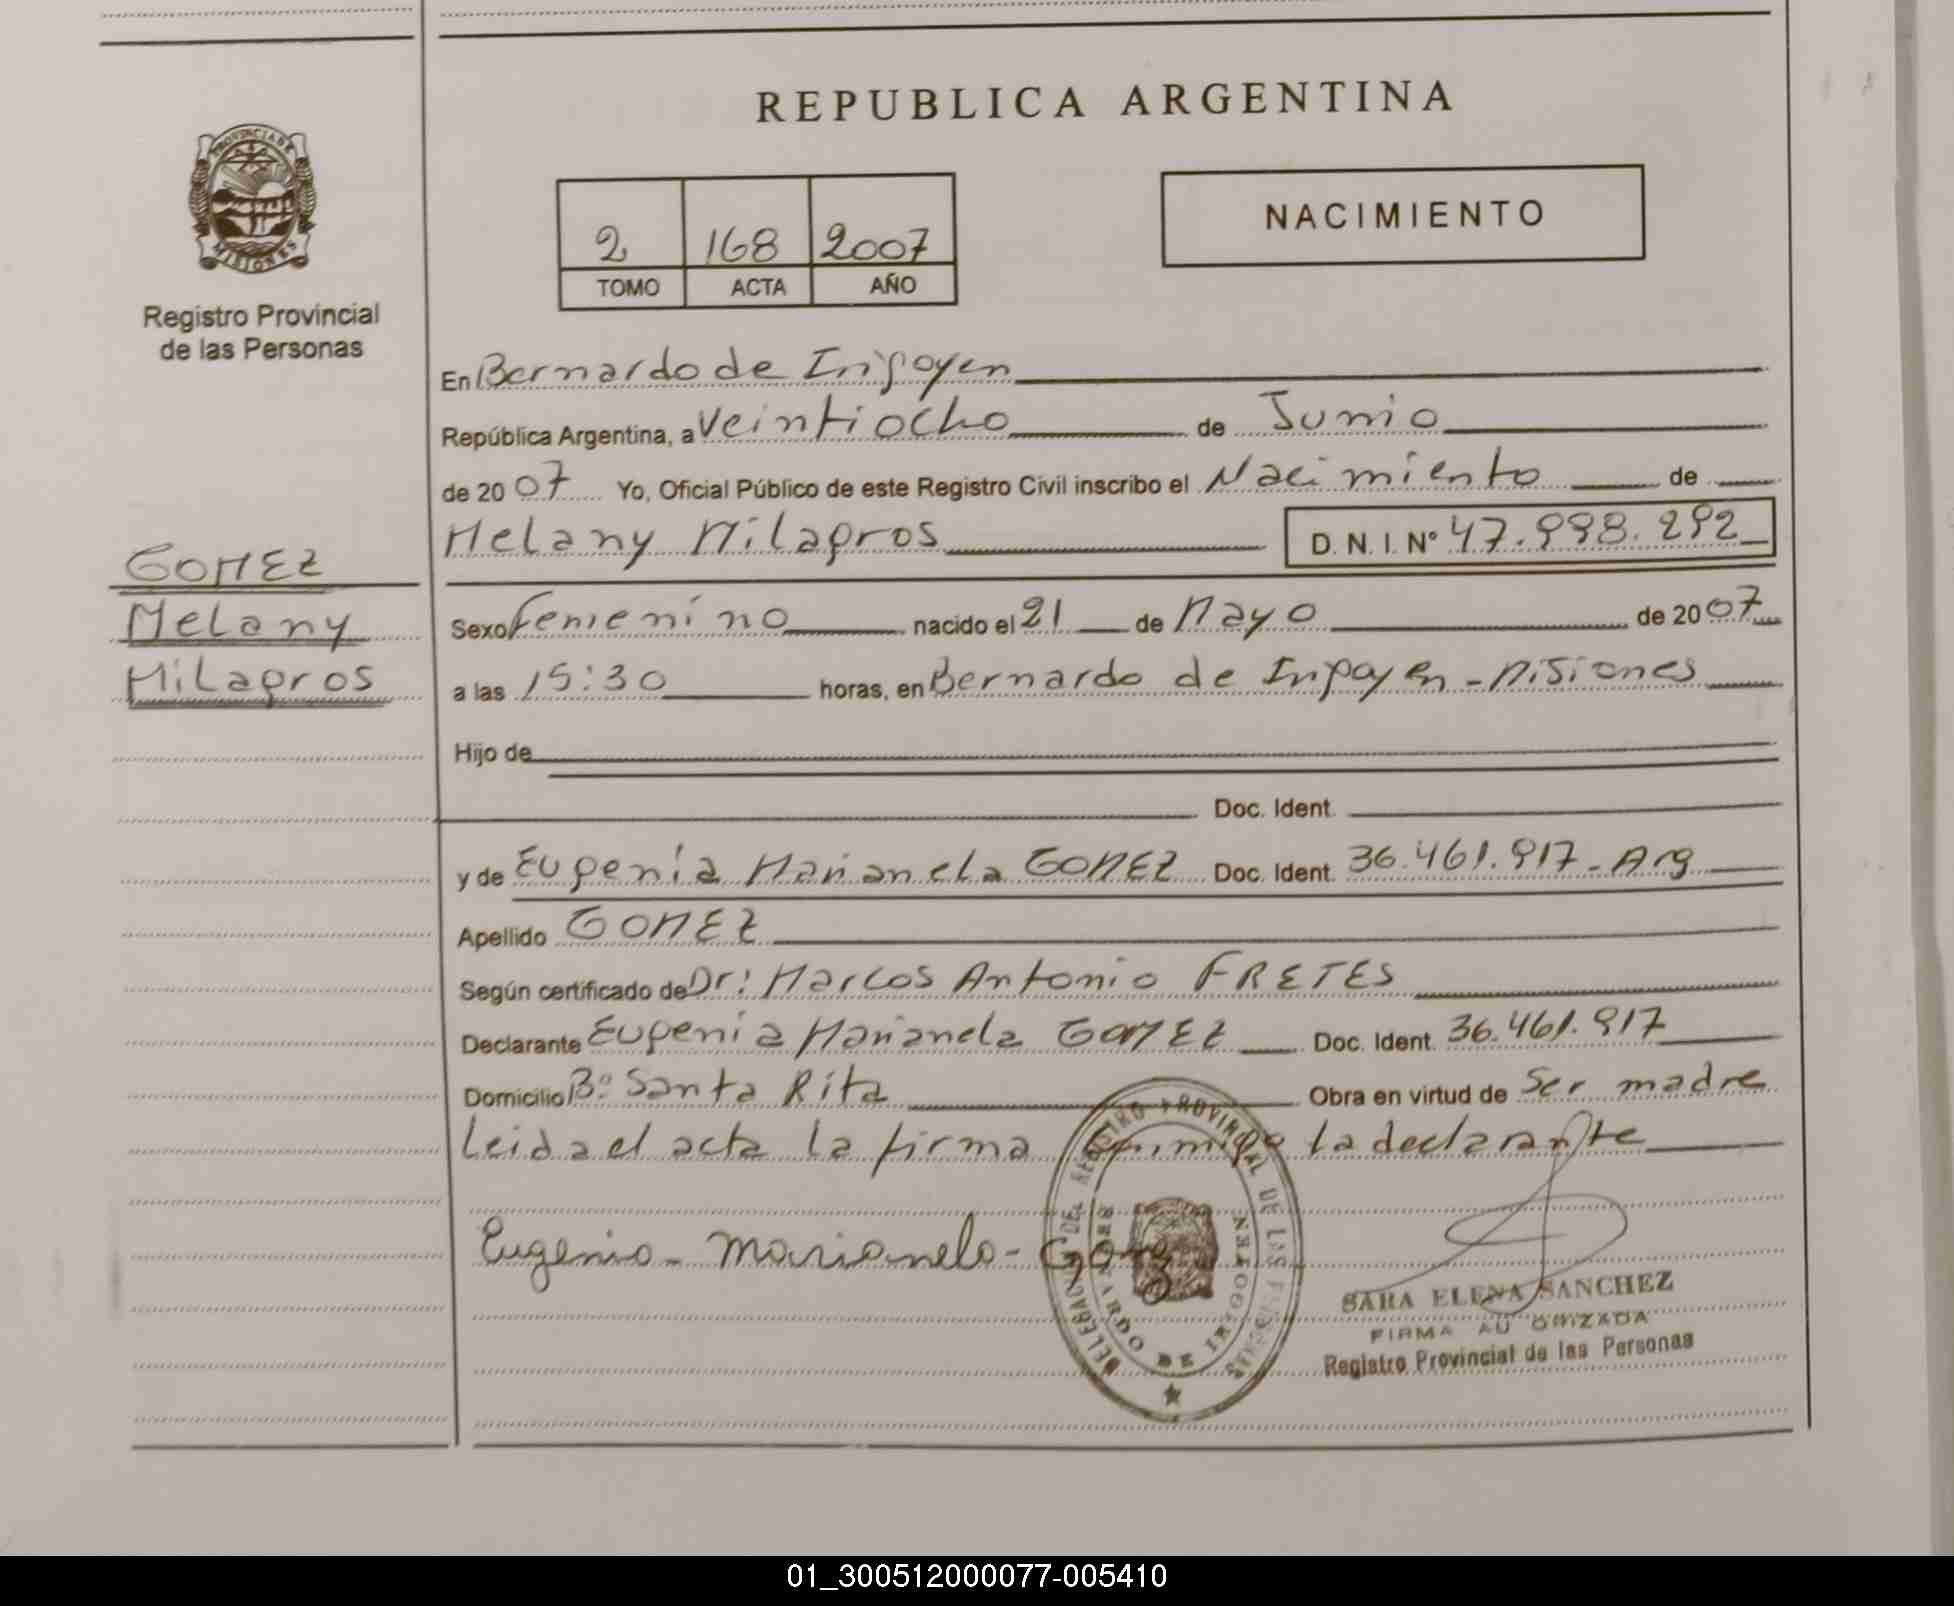 REPUBLICA ARGENTINA
PROVINCIA DE
MISIONES
Registro Provincial
de las Personas
2 168 2007
TOMO ACTA AÑO
NACIMIENTO
GOMEZ
Melany
Milagros
En Bernardo de Irigoyen
República Argentina, a Veintiocho de Junio
de 2007 Yo, Oficial Público de este Registro Civil inscribo el Nacimiento de
Melany Milagros D. N. I. Nº 47.998.292
Sexo Femenino nacido el 21 de Mayo de 2007
a las 15:30 horas, en Bernardo de Irigoyen - Misiones
Hijo de
Doc. Ident.
y de Eugenia Marianela GOMEZ Doc. Ident. 36.461.917 - Arg
Apellido GOMEZ
Según certificado de Dr: Marcos Antonio FRETES
Declarante Eugenia Marianela GOMEZ Doc. Ident. 36.461.917
Domicilio Bº Santa Rita Obra en virtud de Ser madre
Leida el acta la firma conmigo la declarante
Eugenia - Marianela - Gomez
DELEGACION DEL REGISTRO PROVINCIAL DE LAS PERSONAS
BERNARDO DE IRIGOYEN
SARA ELENA SANCHEZ
FIRMA AUTORIZADA
Registro Provincial de las Personas
01_300512000077-005410